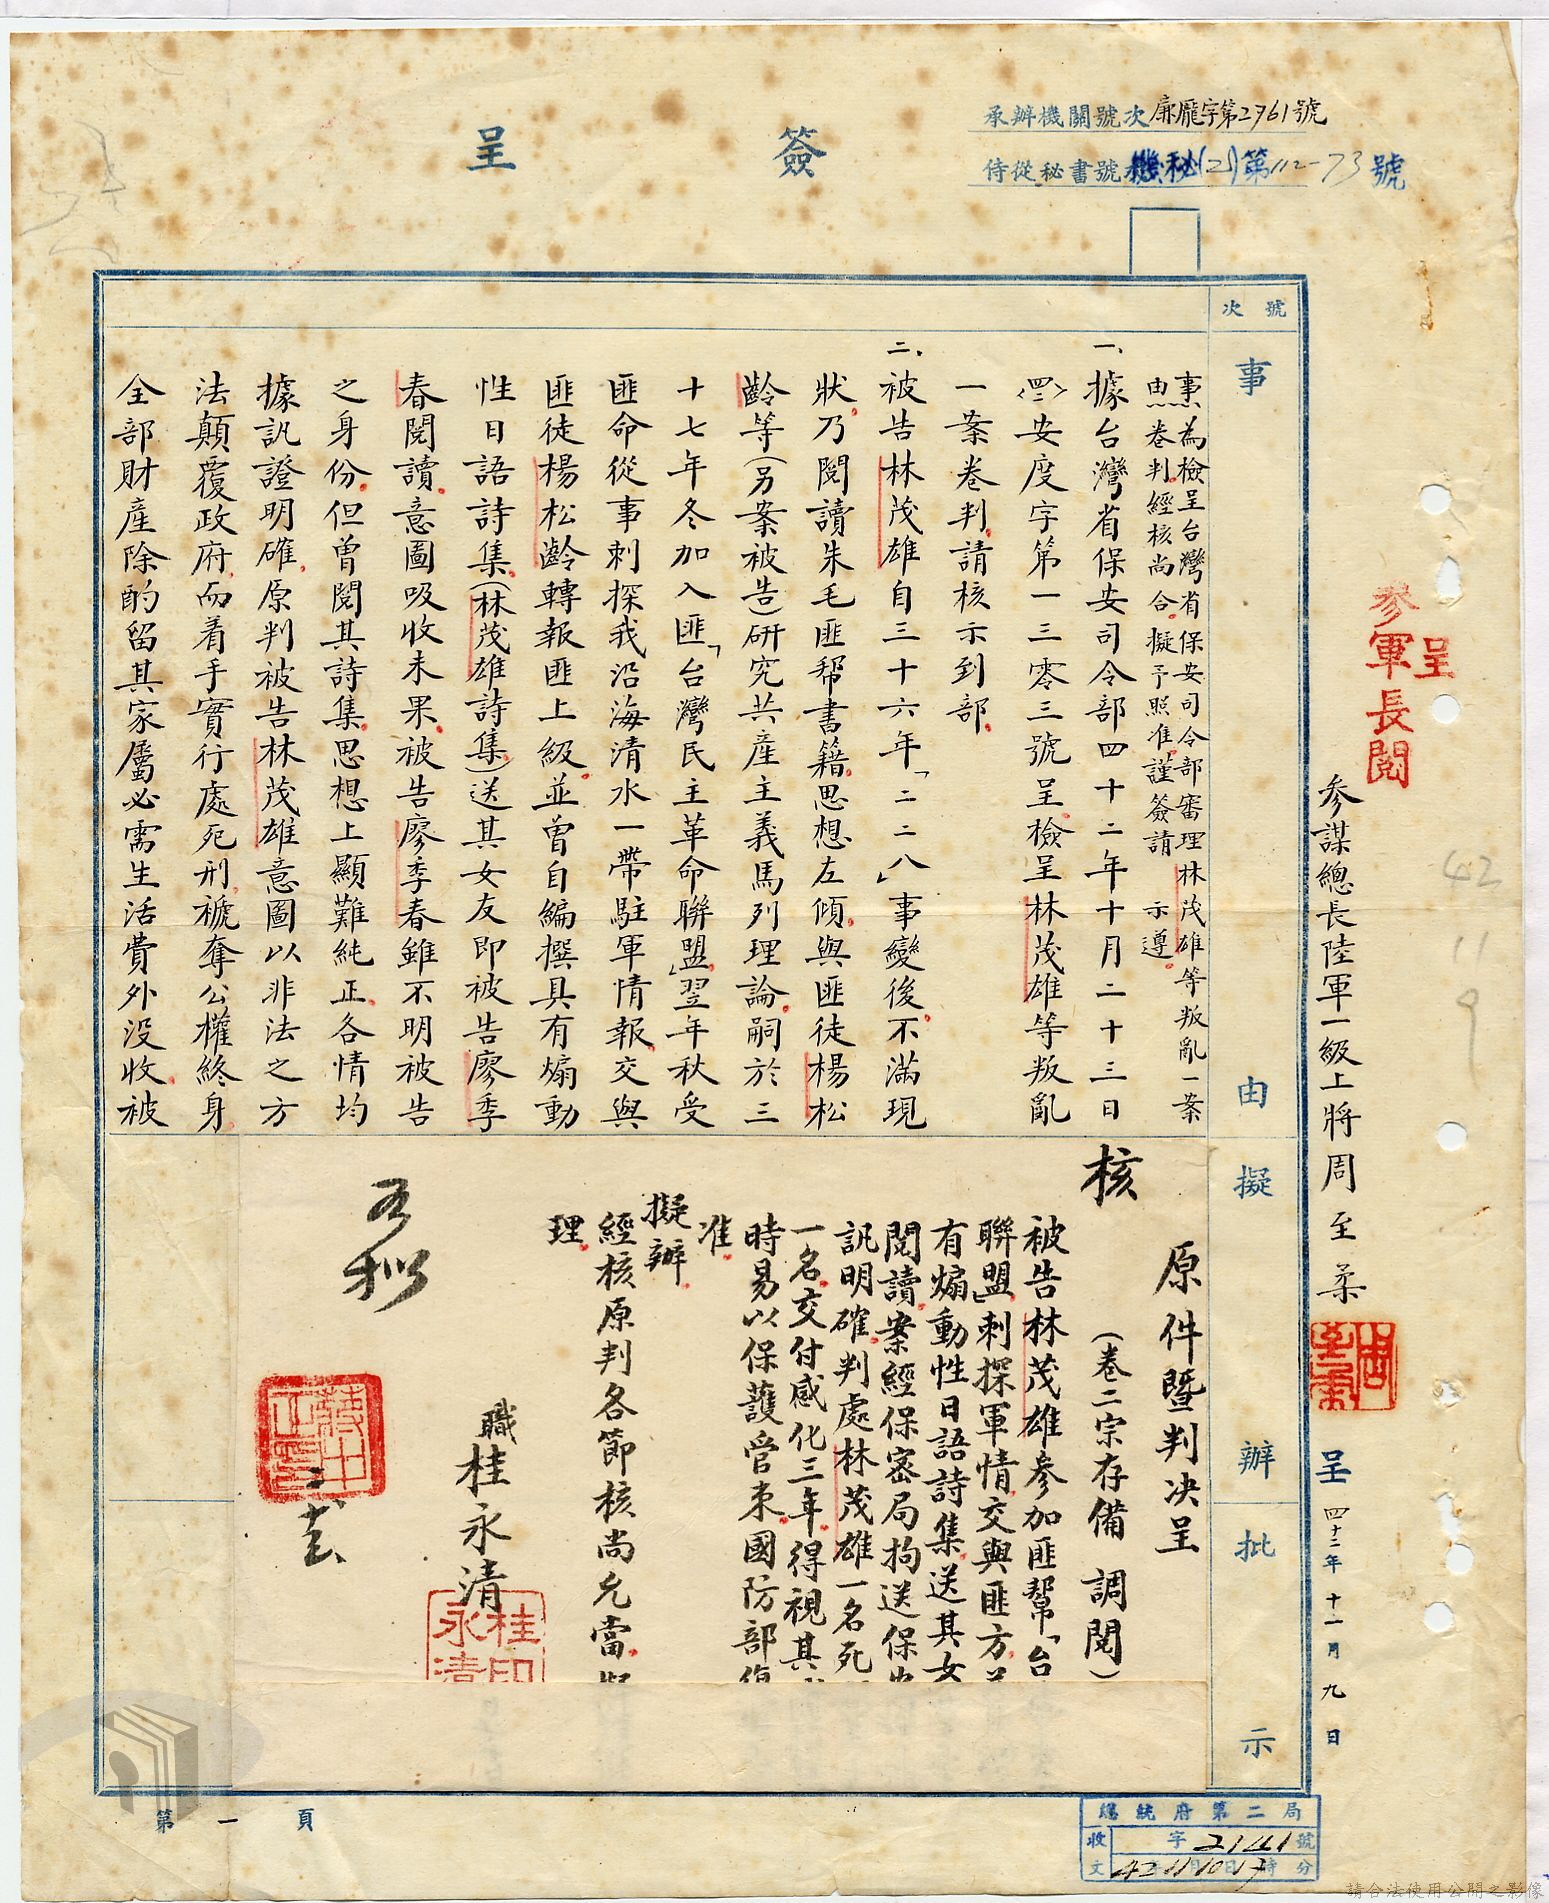 簽呈
承辦機關號次廉龐字第2761號
侍從秘書號機秘(2)第112-73號
呈
參軍長閱
參謀總長陸軍一級上將周至柔
呈 四十二年十一月九日
42
11
9
號次
事由
擬辦
批示
事由:為檢呈台灣省保安司令部審理林茂雄等叛亂一案
卷判經核尚合擬予照准謹簽請 示遵
一、據台灣省保安司令部四十二年十月二十三日
(四二)安度字第一三零三號呈檢呈林茂雄等叛亂
一案卷判請核示到部
二、被告林茂雄自三十六年「二二八」事變後不滿現
狀乃閱讀朱毛匪幫書籍思想左傾與匪徒楊松
齡等(另案被告)研究共產主義馬列理論嗣於三
十七年冬加入匪「台灣民主革命聯盟」翌年秋受
匪命從事刺探我沿海清水一帶駐軍情報交與
匪徒楊松齡轉報匪上級並曾自編撰具有煽動
性日語詩集(林茂雄詩集)送其女友即被告廖季
春閱讀意圖吸收未果被告廖季春雖不明被告
之身份但曾閱其詩集思想上顯難純正各情均
據訊證明確原判被告林茂雄意圖以非法之方
法顛覆政府而着手實行處死刑褫奪公權終身
全部財產除酌留其家屬必需生活費外沒收被
原件暨判決呈
核 (卷二宗存備 調閱)
被告林茂雄參加匪幫「台
聯盟」刺探軍情交與匪方
有煽動性日語詩集送其女
閱讀案經保密局拘送保安
訊明確判處林茂雄一名死
一名交付感化三年得視其
時易以保護管束國防部
准
擬辦
經核原判各節核尚允當擬
理
職桂永清
桂永清印
蔣中正印
第一頁
總統府第二局
收文 字2141號
請合法使用公開之影像